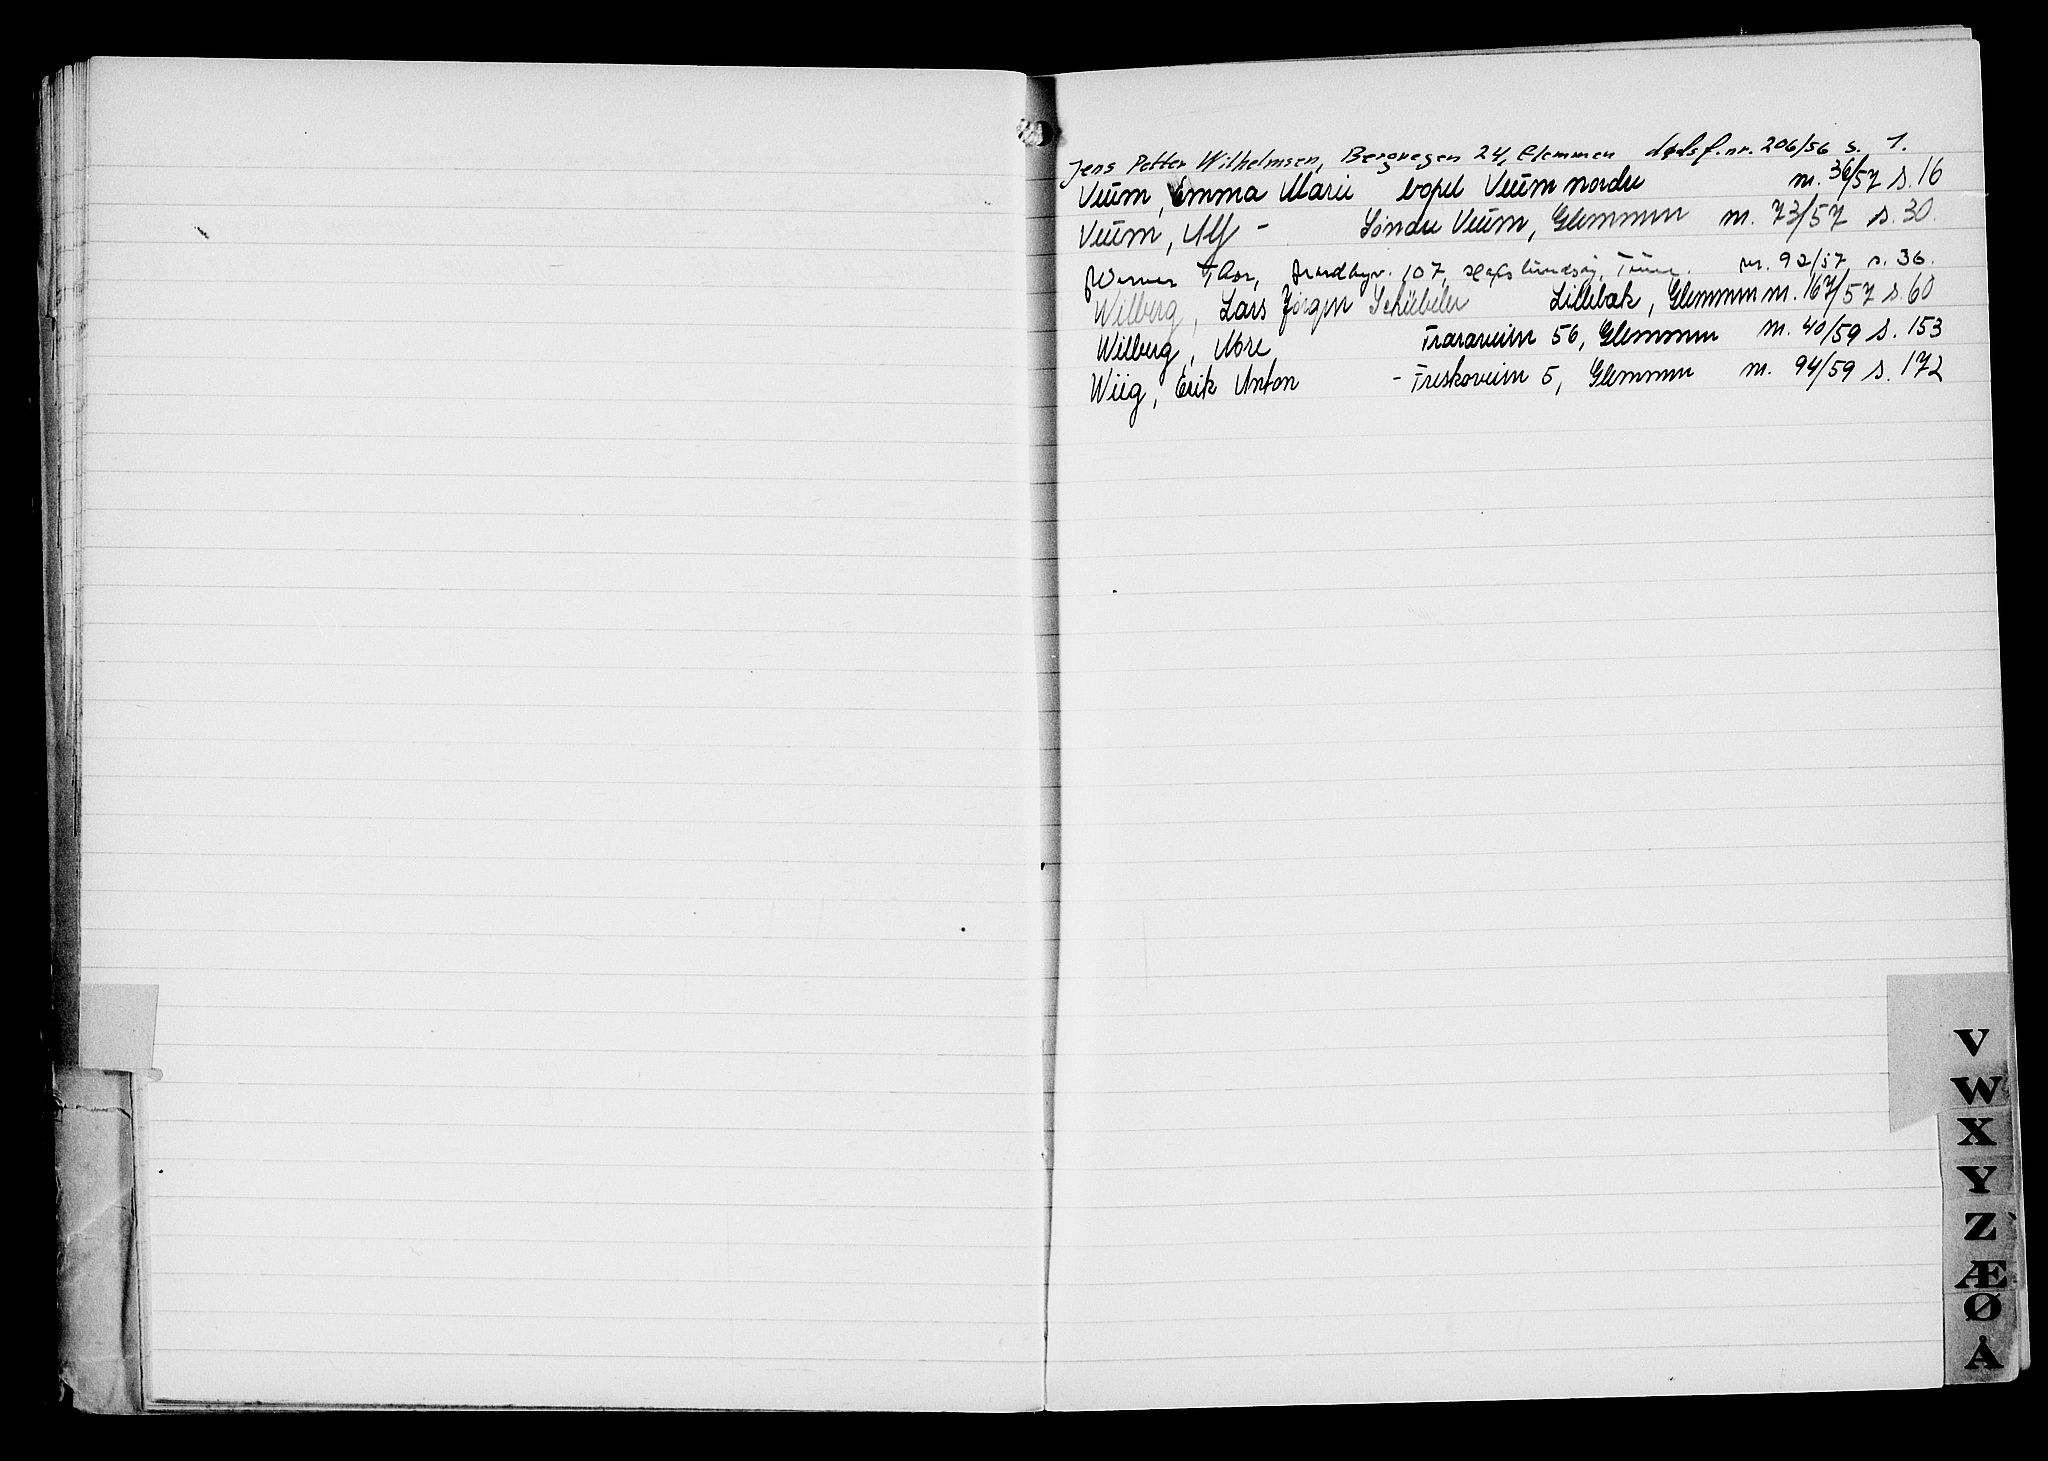 Jens Petter Wilhelmsen, Bergvegen 24, Glemmen dødsf.nr. 206/56 s. 1.
Veum, Emma Marie bopel Veum nordre nr. 36/57 s. 16
Veum, Alf - Søndre Veum, Glemmen nr. 73/57 s. 30.
Werner Thor, 107, Hafslundsøy, Tune. nr. 92/57 s. 36.
Wilberg, Lars Jørgen Schübeler Lillebæk, Glemmen nr. 167/57 s. 60
Wilberg, Nore Traraveien 56, Glemmen nr. 40/59 s. 153
Wiig, Erik Anton - Treskoveien 5, Glemmen nr. 94/59 s. 172
V
W
X
Y
Z
Æ
Ø
Å